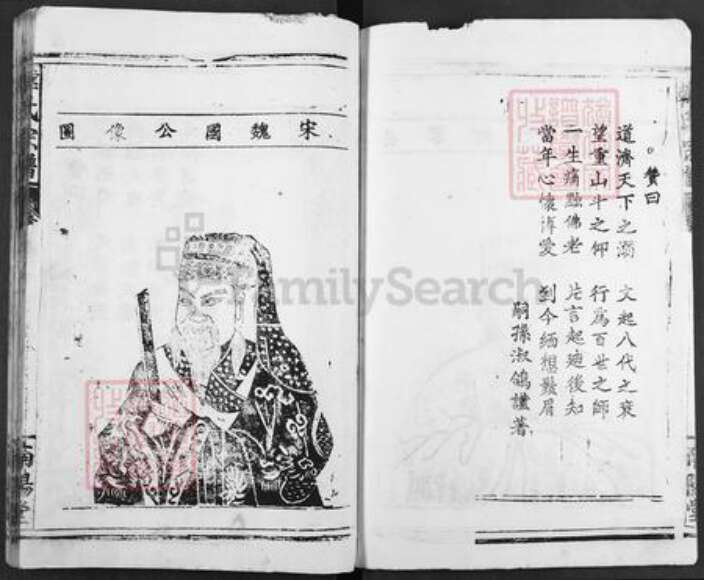 宋魏國公像圖
贊曰
道濟天下之溺 文起八代之衰
望重山斗之仰 行為百世之師
一生痛黜佛老 片言起廸後知
當年心懷博愛 到今緬想鬚眉
嗣孫淑鴿謹著
南陽堂
FamilySearch